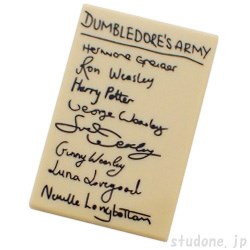 DUMBLEDORE'S ARMY
Hermione Granger
Ron Weasley
Harry Potter
George Weasley
Fred Weasley
Ginny Weasley
Luna Lovegood
Neville Longbottom
studone.jp